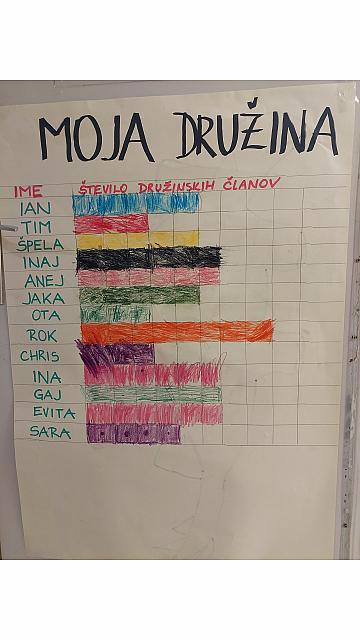 MOJA DRUŽINA
IME ŠTEVILO DRUŽINSKIH ČLANOV
IAN
TIM
ŠPELA
INAJ
ANEJ
JAKA
OTA
ROK
CHRIS
INA
GAJ
EVITA
SARA